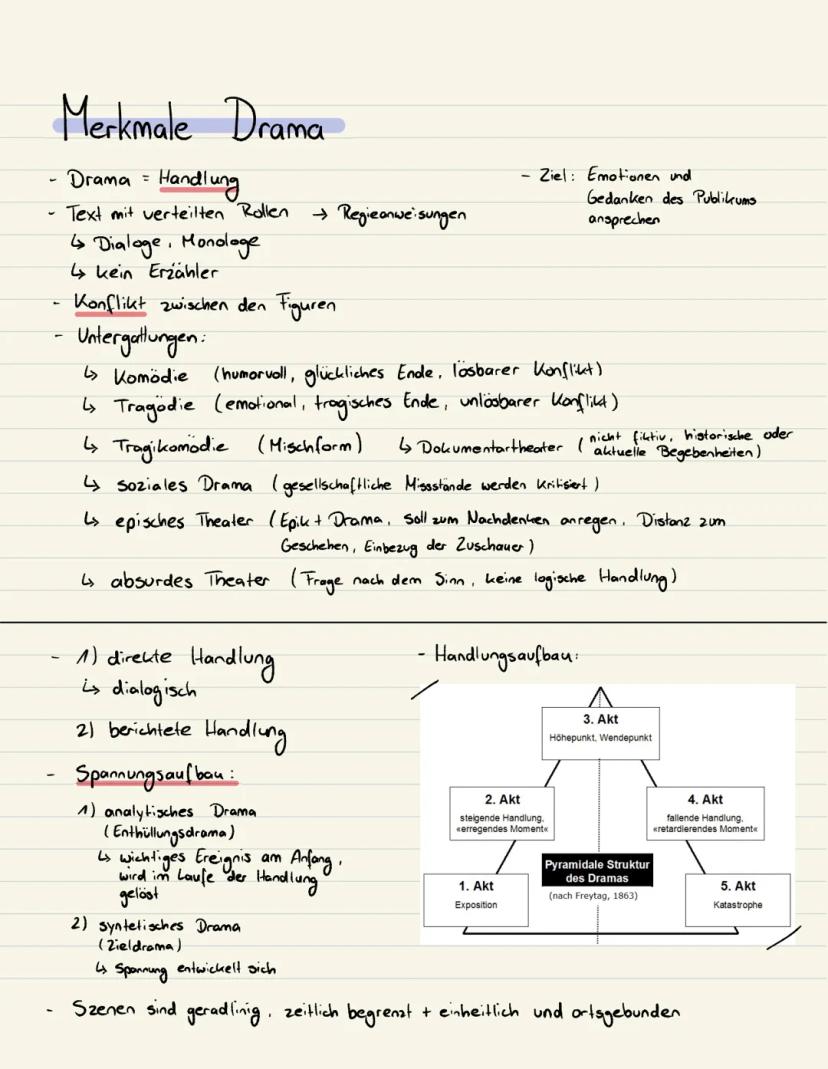 Merkmale Drama
- Drama = Handlung
- Ziel: Emotionen und
Gedanken des Publikums
ansprechen
- Text mit verteilten Rollen → Regieanweisungen
↳ Dialoge, Monologe
↳ kein Erzähler
- Konflikt zwischen den Figuren
- Untergattungen:
↳ Komödie (humorvoll, glückliches Ende, lösbarer Konflikt)
↳ Tragödie (emotional, tragisches Ende, unlösbarer Konflikt)
↳ Tragikomödie (Mischform) ↳ Dokumentartheater (nicht fiktiv, historische oder
aktuelle Begebenheiten)
↳ soziales Drama (gesellschaftliche Missstände werden kritisiert)
↳ episches Theater (Epik + Drama, soll zum Nachdenken anregen, Distanz zum
Geschehen, Einbezug der Zuschauer)
↳ absurdes Theater (Frage nach dem Sinn, keine logische Handlung)
- 1) direkte Handlung
↳ dialogisch
2) berichtete Handlung
- Spannungsaufbau:
1) analytisches Drama
(Enthüllungsdrama)
↳ wichtiges Ereignis am Anfang,
wird im Laufe der Handlung
gelöst
2) syntetisches Drama
(Zieldrama)
↳ Spannung entwickelt sich
- Handlungsaufbau:
3. Akt
Höhepunkt, Wendepunkt
2. Akt
steigende Handlung,
«erregendes Moment«
4. Akt
fallende Handlung,
«retardierendes Moment«
Pyramidale Struktur
des Dramas
(nach Freytag, 1863)
1. Akt
Exposition
5. Akt
Katastrophe
- Szenen sind geradlinig, zeitlich begrenzt + einheitlich und ortsgebunden